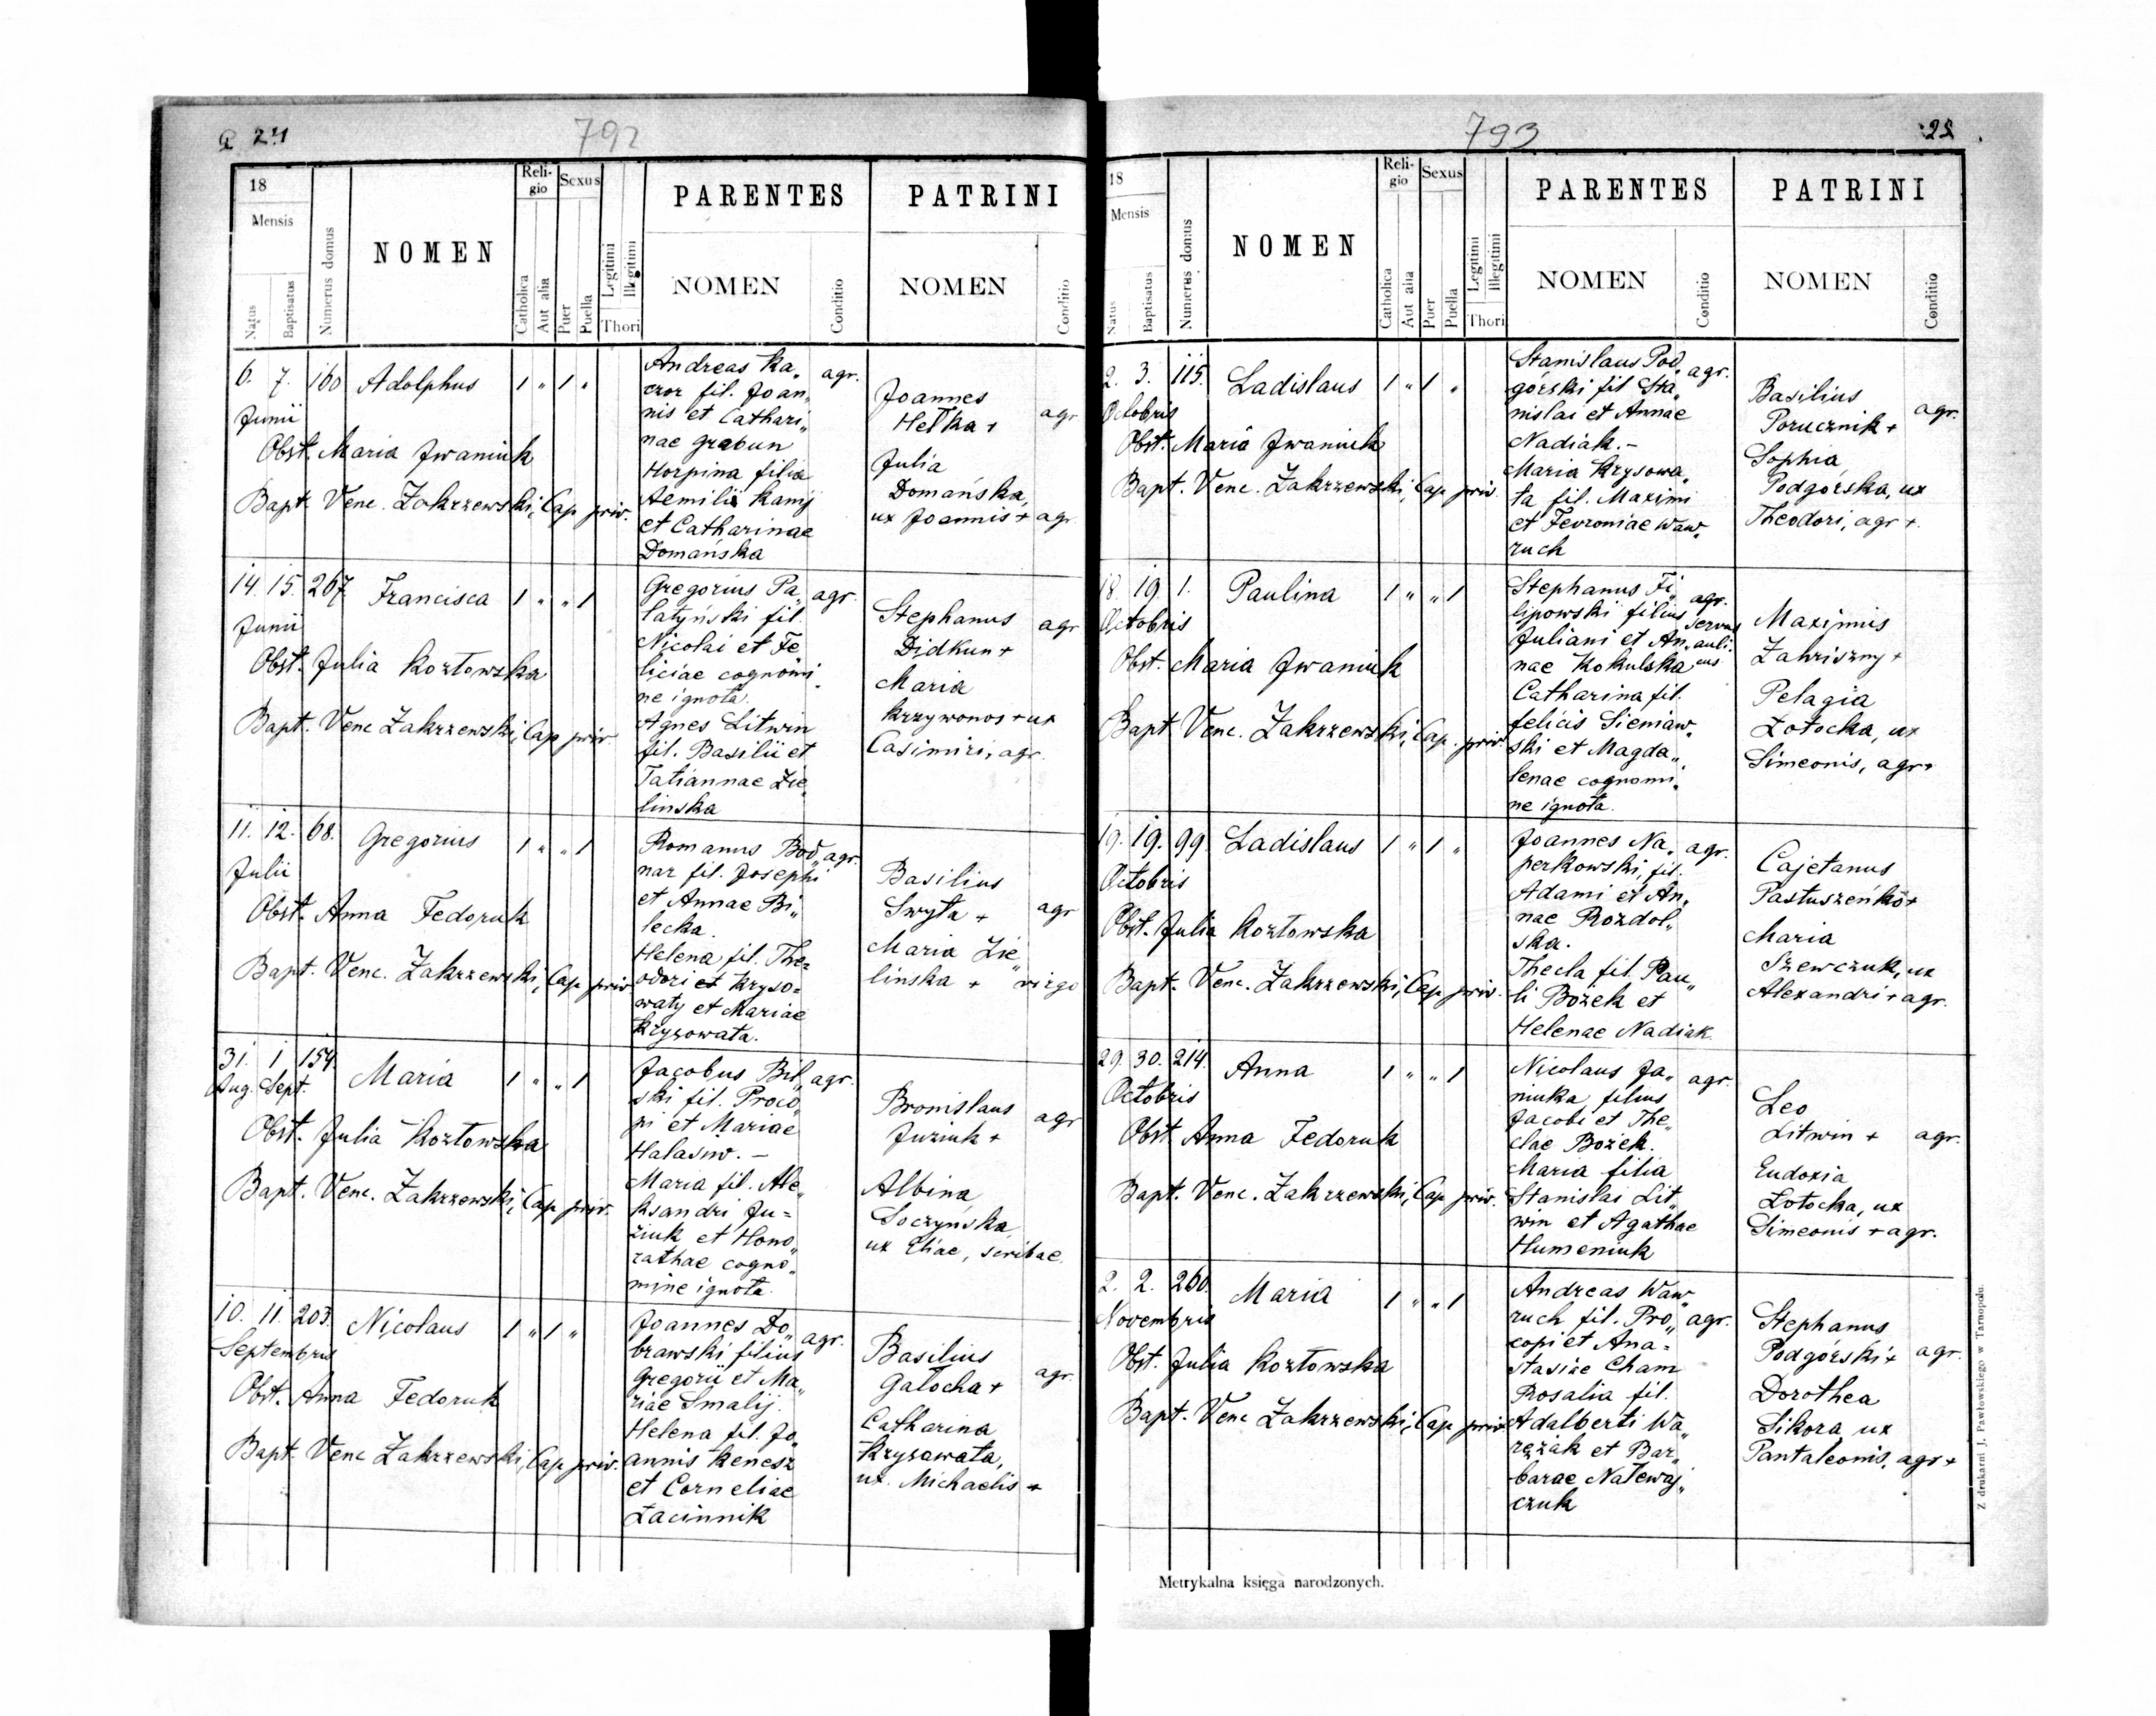 24
792
18
Mensis
Natus
Baptisatus
Numerus domus
NOMEN
Reli-
gio
Catholica
Aut alia
Sexus
Puer
Puella
Legitimi
Illegitimi
Thori
PARENTES
NOMEN
Conditio
PATRINI
NOMEN
Conditio
6. 7. 160 Adolphus 1 " 1 "
Junii
Obst. Maria Iwaniuk
Bapt. Venc. Zakrzewski, Cap priv.
Andreas Ka„ agr.
czor fil. Joan„
nis et Cathari„
nae Grabun
Horpina filia
Aemilii Kanij
et Catharinae
Domańska
Joannes
Hełka + agr
Julia
Domańska,
ux Joannis + agr
14. 15. 267 Francisca 1 " " 1
Junii
Obst. Julia Kozłowska
Bapt. Venc Zakrzewski, Cap priv
Gregorius Pa„ agr.
łatyński fil.
Nicolai et Fe
liciae cognomi„
ne ignota.
Agnes Litwin
fil. Basilii et
Tatiannae Zie„
linska
Stephanus agr
Didkun +
Maria
Krzywonos + ux
Casimiri, agr.
11. 12. 68. Gregorius 1 " " 1
Julii
Obst. Anna Fedoruk
Bapt. Venc. Zakrzewski, Cap priv
Romanus Bod„ agr.
nar fil. Josephi
et Annae Bi„
lecka.
Helena fil. The=
odori et Kryso=
waty et Mariae
Kryzowata.
Basilius
Swyta + agr
Maria Zie„
linska + virgo
31. 1 154. Maria 1 " " 1
Aug. Sept.
Obst. Julia Kozłowska
Bapt. Venc. Zakrzewski, Cap priv.
Jacobus Bil„ agr.
ski fil. Proco„
pi et Mariae
Halasiw. –
Maria fil. Ale„
ksandri Ju=
ziuk et Hono„
rathae cogno„
mine ignota.
Bronislaus agr
Juziuk +
Albina
Soczyńska,
ux Eliae, scribae.
10. 11. 203. Nicolaus 1 " 1 "
Septembris
Obst. Anna Fedoruk
Bapt. Venc Zakrzewski, Cap priv.
Joannes Do„ agr.
brawski filius
Gregorii et Ma„
riae Smalij.
Helena fil. Jo„
annis Kenesz
et Corneliae
Łacinnik
Basilius
Gałocha + agr
Catharina
Kryzawata,
ux. Michaelis +
793
18
Mensis
Natus
Baptisatus
Numerus domus
NOMEN
Reli-
gio
Catholica
Aut alia
Sexus
Puer
Puella
Legitimi
Illegitimi
Thori
PARENTES
NOMEN
Conditio
PATRINI
NOMEN
Conditio
2. 3. 115. Ladislaus 1 " 1 "
Octobris
Obst. Maria Iwaniuk
Bapt. Venc. Zakrzewski, Cap priv.
Stanislaus Pod„ agr.
górski fil Sta„
nislai et Annae
Nadiak. –
Maria Krysowa„
ta fil. Maximi
et Fevroniae Waw„
ruch
Basilius
Porucznik + agr.
Sophia
Podgórska, ux
Theodori, agr +.
18. 19. 1. Paulina 1 " " 1
Octobris
Obst. Maria Iwaniuk
Bapt Venc. Zakrzewski, Cap. priv.
Stephanus Fi„ agr.
lipowski filius servus
Juliani et An„ auli-
nae Kokulska cus
Catharina fil.
felicis Sieniaw„
ski et Magda„
lenae cognomi„
ne ignota.
Maximis
Zahriszny +
Pelagia
Łotocka, ux
Simeonis, agr +
19. 19. 99. Ladislaus 1 " 1 "
Octobris
Obst. Julia Kozłowska
Bapt. Venc. Zakrzewski, Cap priv.
Joannes Na„ agr.
perkowski, fil.
Adami et An„
nae Rozdol„
ska.
Thecla fil. Pau„
li Bożek et
Helenae Nadiak.
Cajetanus
Pastuszeńko +
Maria
Szewczuk, ux
Alexandri + agr.
29. 30. 214. Anna 1 " " 1
Octobris
Obst. Anna Fedoruk
Bapt. Venc. Zakrzewski, Cap priv.
Nicolaus Ja„ agr.
niuka filius
Jacobi et The„
clae Bożek.
Maria filia
Stanislai Lit„
win et Agathae
Humeniuk
Leo
Litwin + agr.
Eudoxia
Łotocka, ux
Simeonis + agr.
2. 2. 260. Maria 1 " " 1
Novembris
Obst. Julia Kozłowska
Bapt. Venc Zakrzewski, Cap priv.
Andreas Waw„
ruch fil. Pro„ agr.
copi et Ana=
stasiae Cham
Rosalia fil.
Adalberti Wa„
rężak et Bar„
barae Nalewaj„
czuk
Stephanus
Podgórski + agr.
Dorothea
Sikora ux
Pantaleonis, agr +
Metrykalna księga narodzonych.
Z drukarni J. Pawłowskiego w Tarnopolu.